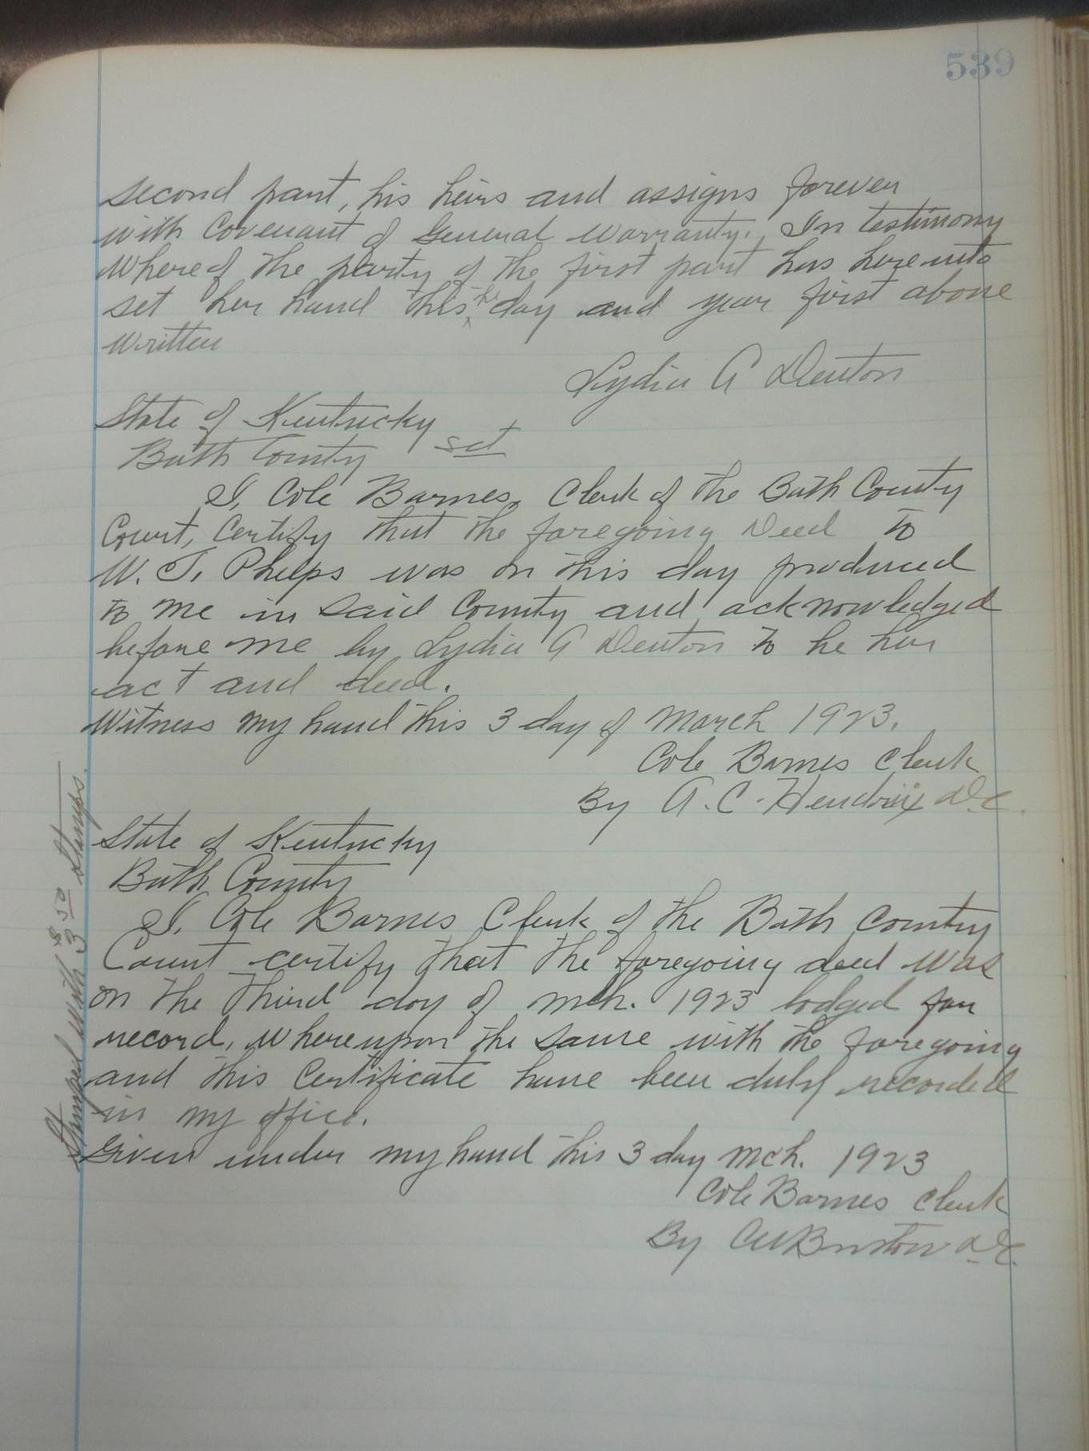 539
second part, his heirs and assigns forever
with Covenant of General Warranty. In testimony
Whereof the party of the first part has hereunto
set her hand this day and year first above
written
Lydia A Denton
State of Kentucky
Bath County sct
I, Cole Barnes, Clerk of the Bath County
Court, Certify that the foregoing Deed to
W. T. Phelps was on this day produced
to me in said County and acknowledged
before me by Lydia A Denton to be her
act and deed.
Witness my hand this 3 day of March 1923.
Cole Barnes Clerk
By A. C. Hendrix D.C.
State of Kentucky
Bath County
I, Cole Barnes Clerk of the Bath County
Court certify that the foregoing deed was
on the Third day of mch. 1923 lodged for
record, whereupon the same with the foregoing
and this Certificate have been duly recorded
in my office.
Given under my hand this 3 day mch. 1923
Cole Barnes Clerk
By D.C.
Stamped with $3.50 Stamps.